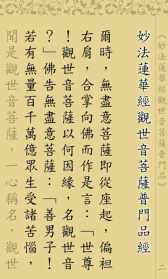 《妙法蓮華經觀世音菩薩普門品》
妙法蓮華經觀世音菩薩普門品經
爾時，無盡意菩薩即從座起，偏袒
右肩，合掌向佛而作是言：「世尊
！觀世音菩薩以何因緣，名觀世音
？」佛告無盡意菩薩：「善男子！
若有無量百千萬億眾生受諸苦惱，
聞是觀世音菩薩，一心稱名，觀世